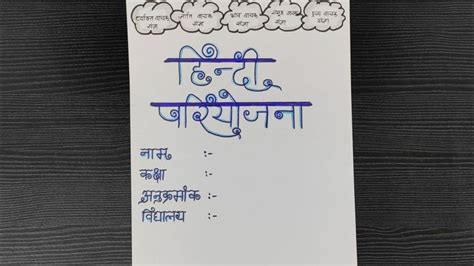 व्यक्ति वाचक संज्ञा
जाति वाचक संज्ञा
भाव वाचक संज्ञा
समूह वाचक संज्ञा
द्रव्य वाचक संज्ञा
हिन्दी
परियोजना
नाम :-
कक्षा :-
अनुक्रमांक :-
विद्यालय :-